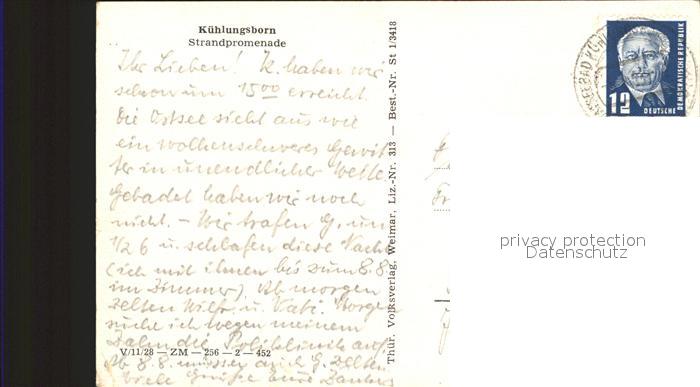 Kühlungsborn
Strandpromenade
Ihr Lieben! K. haben wir
schon um 15⁰⁰ erreicht.
Die Ostsee sieht aus wie
ein wolkenschweres Gewit-
ter in unendlicher Weite.
Gebadet haben wir noch
nicht. – Wir trafen G. um
1/2 6 u. schlafen diese Nacht
(ich mit ihnen bis zum 8.8.
im Zimmer). Ab morgen
zelten Wilfr. u. Kati. Morgen
suche ich wegen meinem
Zahn die Poliklinik auf.
Ab 8.8. müssen auch G. zelten.
Viele Grüße
V/11/28 — ZM — 256 — 2 — 452
Thür. Volksverlag, Weimar, Liz.-Nr. 313 — Best.-Nr. St 1/3418
12
DEUTSCHE
DEMOKRATISCHE REPUBLIK
privacy protection
Datenschutz